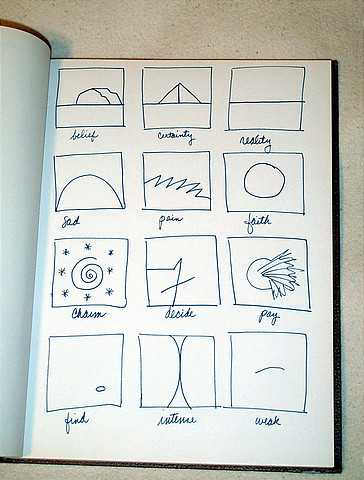 belief certainty reality
sad pain faith
charm decide pay
find intense weak